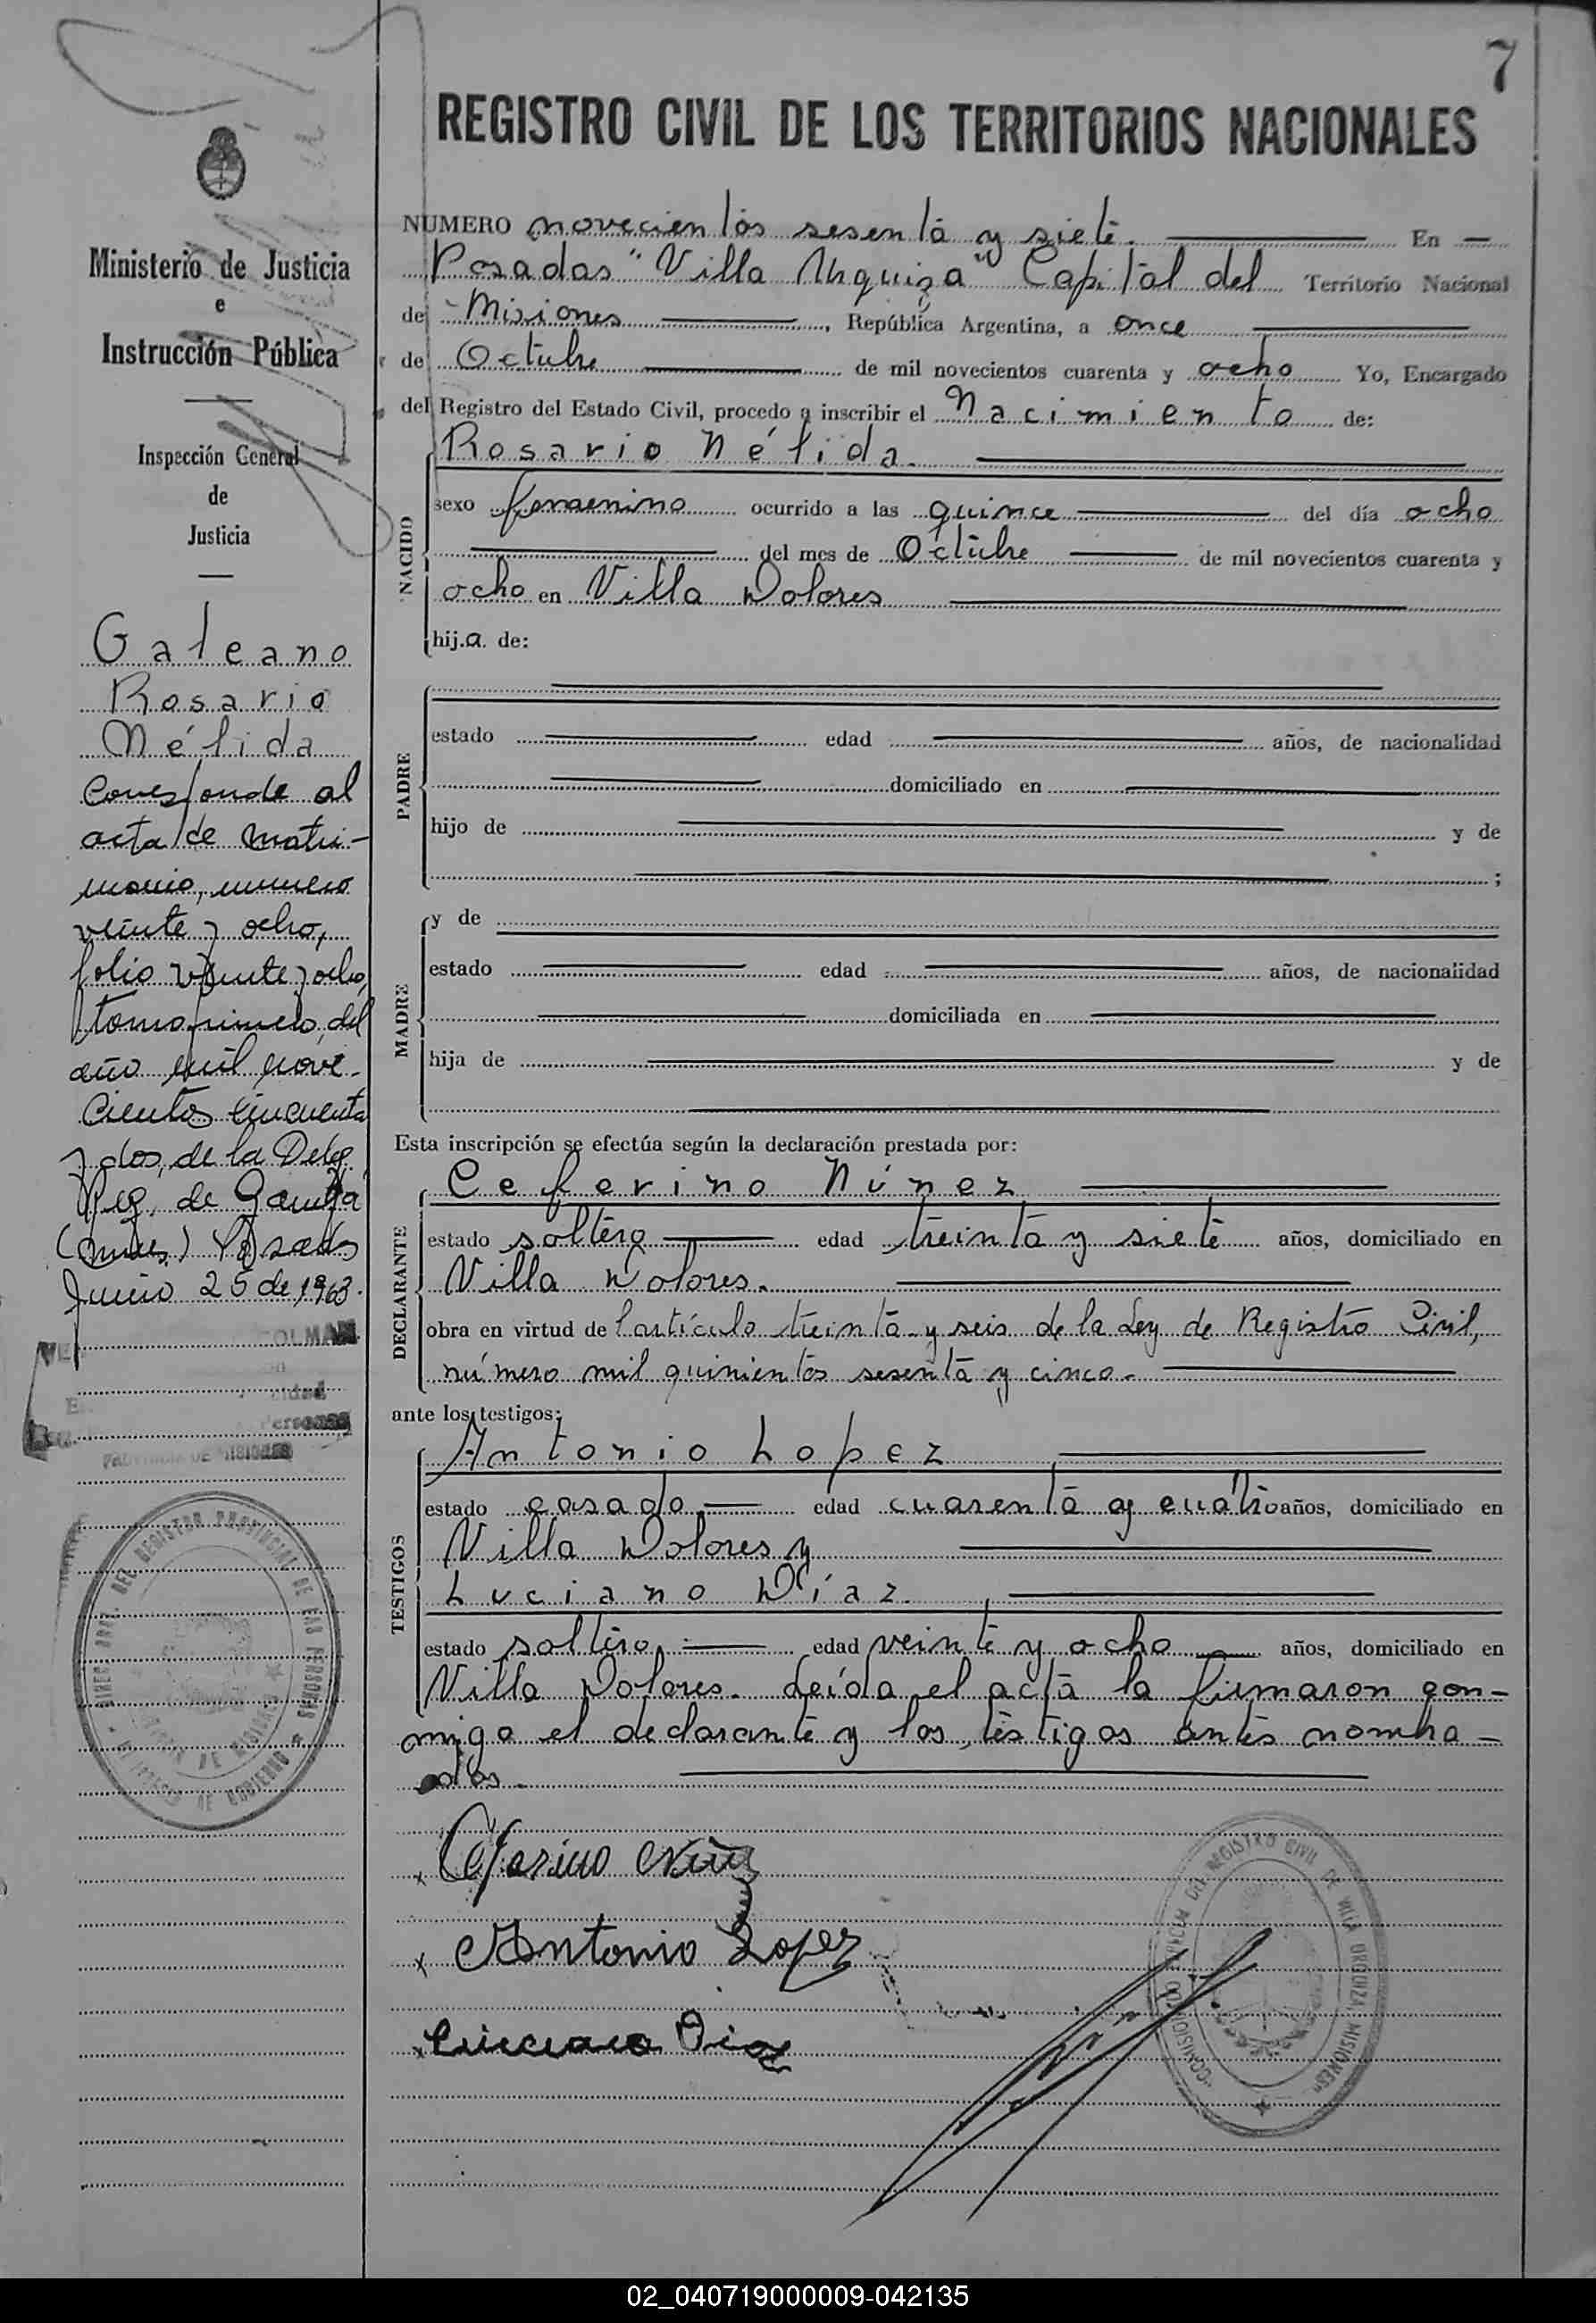 7
REGISTRO CIVIL DE LOS TERRITORIOS NACIONALES
Ministerio de Justicia
e
Instrucción Pública
Inspección General
de
Justicia
Galeano
Rosario
Nélida
Corresponde al
acta de matri-
monio, numero
veinte y ocho,
folio veinte y ocho,
tomo primero, del
año mil nove-
cientos cincuenta
y dos, de la Deleg.
Reg. de
Posadas
Junio 25 de 1963.
COLMAN
PROVINCIA DE MISIONES
DEL REGISTRO PROVINCIAL DE LAS PERSONAS
DE GOBIERNO
NUMERO novecientos sesenta y siete. En
Posadas "Villa Urquiza" Capital del Territorio Nacional
de Misiones, República Argentina, a once
de Octubre de mil novecientos cuarenta y ocho Yo, Encargado
del Registro del Estado Civil, procedo a inscribir el Nacimiento de:
NACIDO
Rosario Nélida.
sexo femenino ocurrido a las quince del día ocho
del mes de Octubre de mil novecientos cuarenta y
ocho en Villa Dolores
hija de:
PADRE
estado edad años, de nacionalidad
domiciliado en
hijo de y de
;
MADRE
y de
estado edad años, de nacionalidad
domiciliada en
hija de y de
Esta inscripción se efectúa según la declaración prestada por:
DECLARANTE
Ceferino Núnez
estado soltero edad treinta y siete años, domiciliado en
Villa Dolores.
obra en virtud del artículo treinta y seis de la Ley de Registro Civil,
número mil quinientos sesenta y cinco.
ante los testigos:
TESTIGOS
Antonio Lopez
estado casado edad cuarenta y cuatro años, domiciliado en
Villa Dolores y
Luciano Díaz.
estado soltero edad veinte y ocho años, domiciliado en
Villa Dolores. Leída el acta la firmaron con-
migo el declarante y los testigos antes nombra-
dos.
x Ceferino
x Antonio Lopez
x Luciano Diaz
COMISION DEL REGISTRO CIVIL DE VILLA URQUIZA MISIONES
02_040719000009-042135